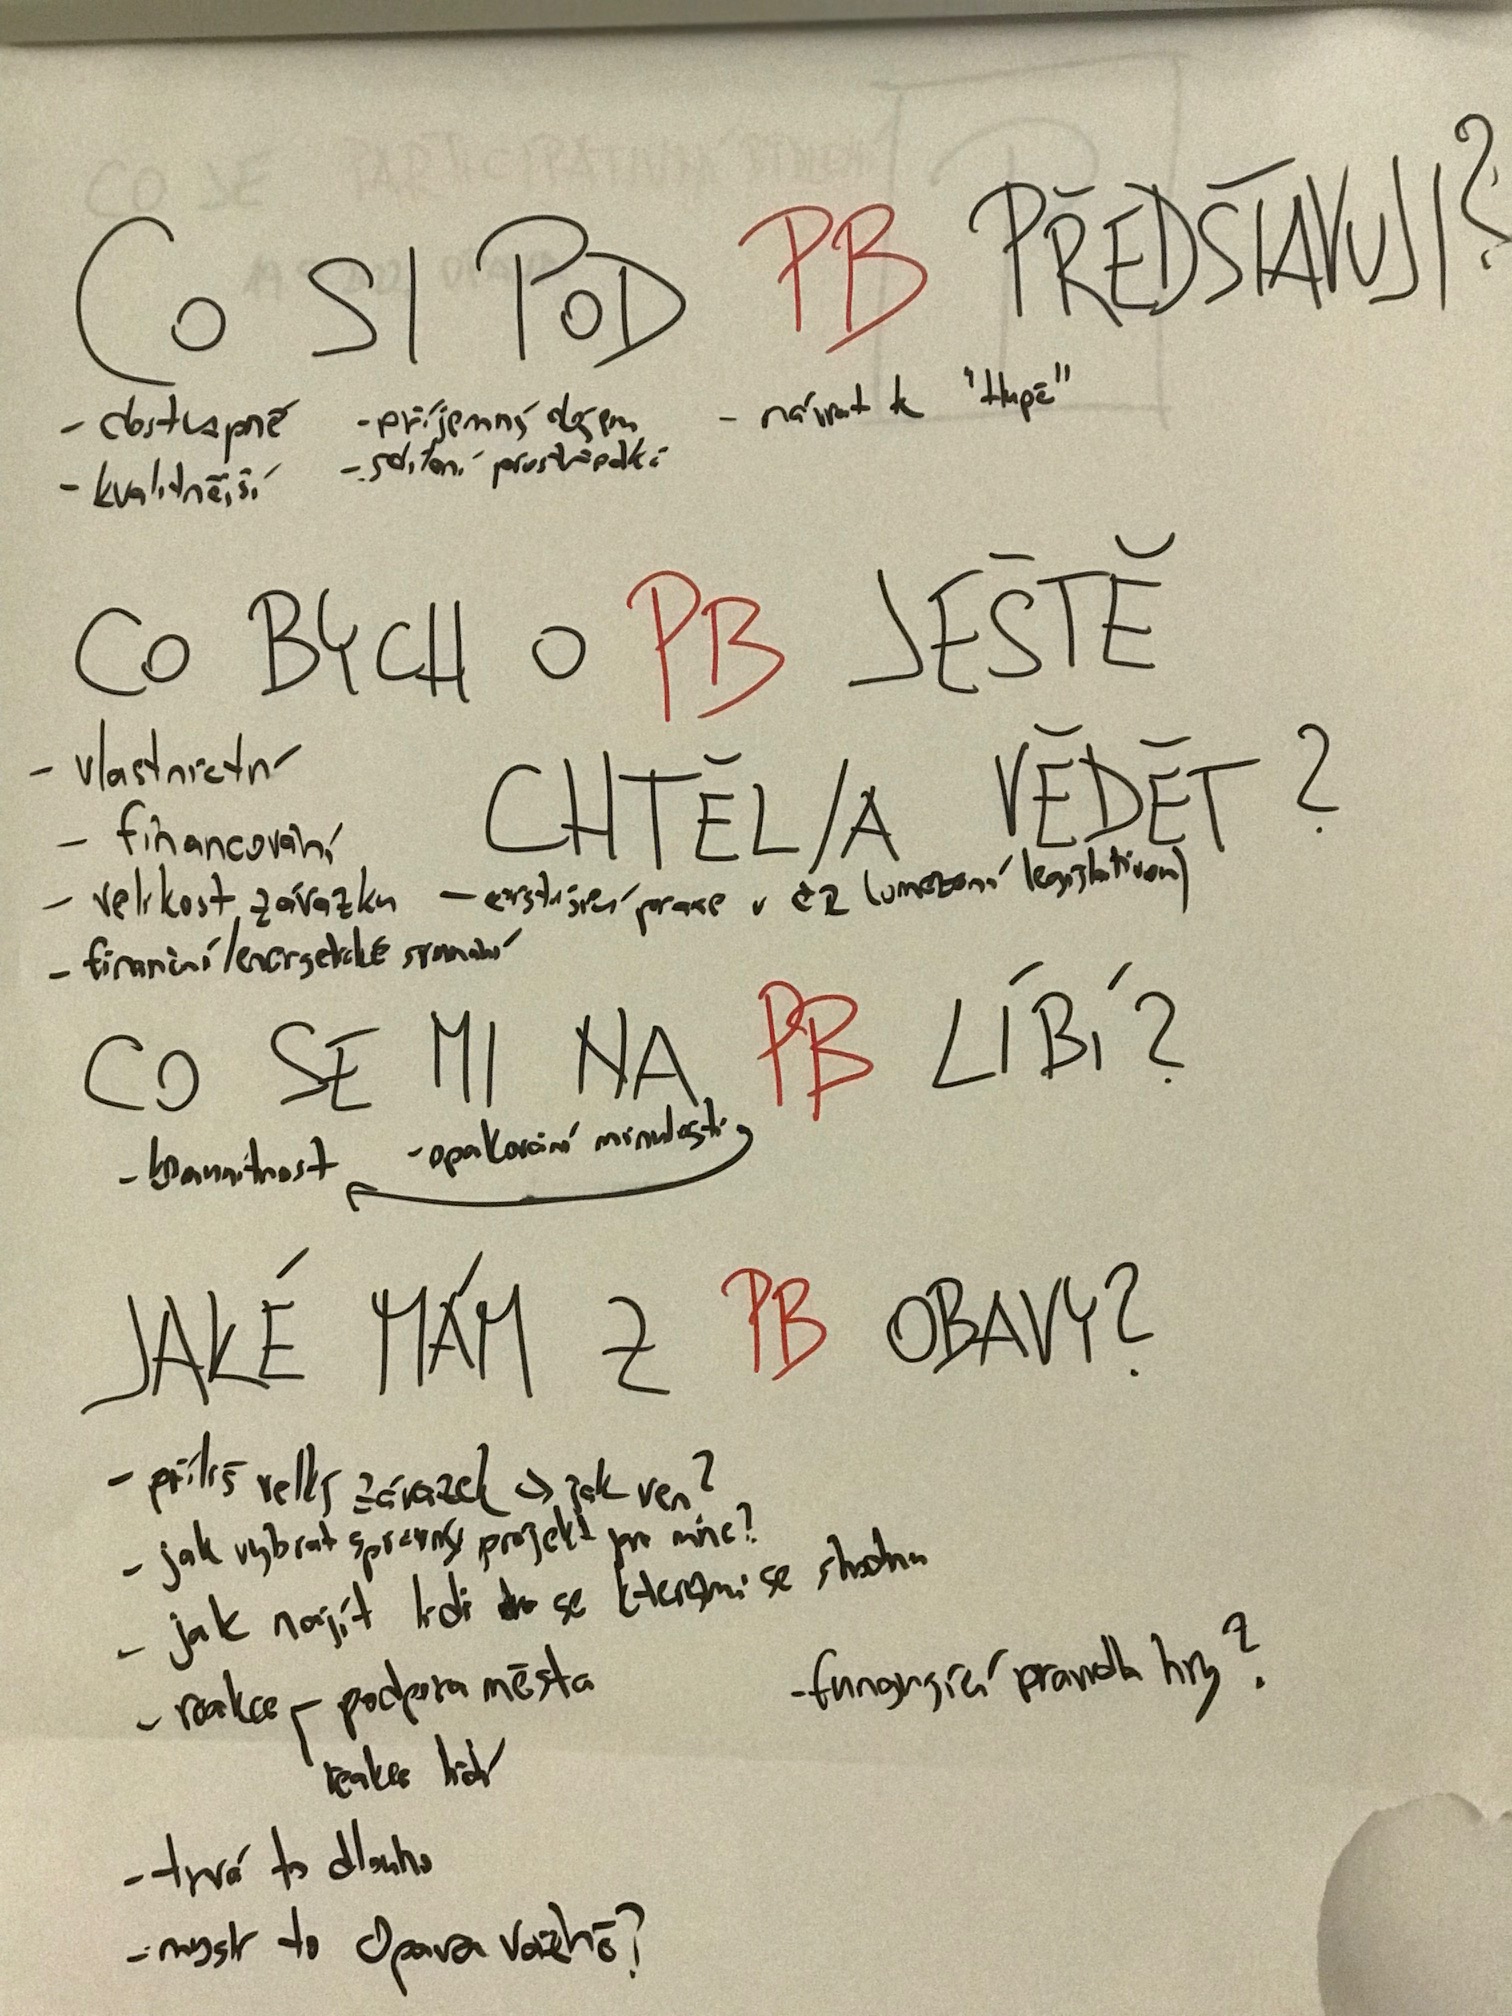 CO SI POD PB PŘEDSTAVUJI?
- dostupné
- kvalitnější
- příjemný dojem
- sdílení prostředků
- návrat k "tlupě"
CO BYCH O PB JEŠTĚ
CHTĚL/A VĚDĚT?
- vlastnictví
- financování
- velikost závazku
- finanční/energetické srovnání
- existující praxe v ČR (omezení legislativou)
CO SE MI NA PB LÍBÍ?
- komunitnost
- opakování minulosti
JAKÉ MÁM Z PB OBAVY?
- příliš velký závazek → jak ven?
- jak vybrat správný projekt pro mne?
- jak najít lidi se kterými se shodnu
- reakce - podpora města
reakce lidí
- fungující pravidla hry?
- trvá to dlouho
- myslí to Opava vážně?